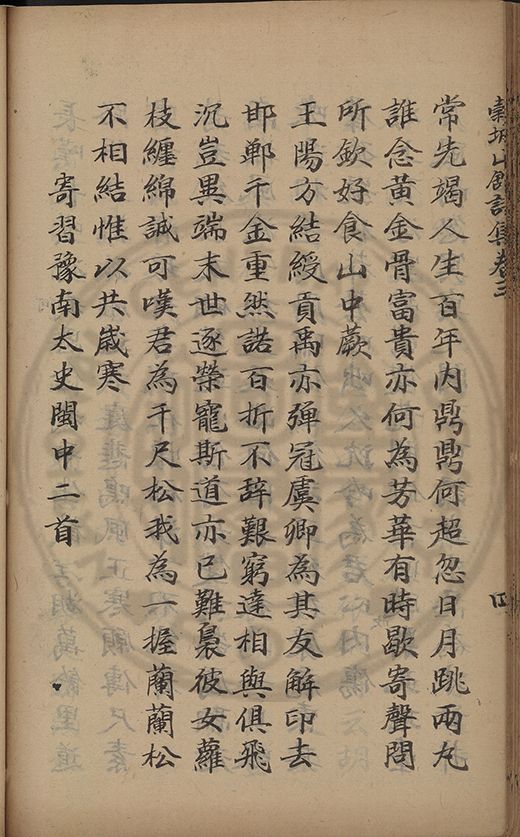 山館詩集卷三
四
常先竭人生百年内鼎鼎何超忽日月跳兩丸
誰念黃金骨富貴亦何為芳華有時歇寄聲問
所欽好食山中蕨
王陽方結綬貢禹亦彈冠虞卿為其友解印去
邯鄲千金重然諾百折不辭艱窮達相與俱飛
沉豈異端末世逐榮寵斯道亦已難裊彼女蘿
枝纏綿誠可嘆君為千尺松我為一握蘭蘭松
不相結惟以共歲寒
寄習豫南太史閩中二首